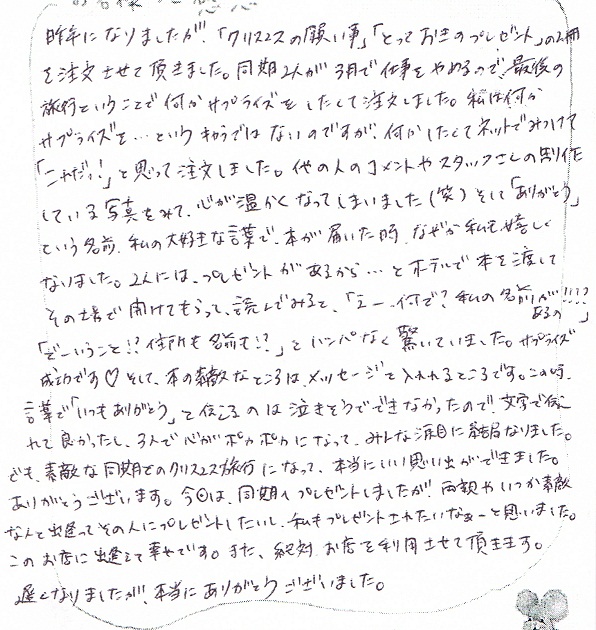 昨年になりましたが、「クリスマスの願い事」「とっておきのプレゼント」の2冊
を注文させて頂きました。同期2人が3月で仕事をやめるので、最後の
旅行ということで何かサプライズをしたくて注文しました。私は何か
サプライズを…というキャラではないのですが、何かしたくてネットでみつけて
「これだっ!」と思って注文しました。他の人のコメントやスタッフさんの制作
している写真をみて、心が温かくなってしまいました(笑)そして「ありがとう」
という名前、私の大好きな言葉で、本が届いた時、なぜか私も嬉しく
なりました。2人には、プレゼントがあるから…とホテルで本を渡して
その場で開けてもらって、読んでみると、「えー、何で?私の名前が
あるの!!??」
「どーいうこと!?住所も名前も!?」とハンパなく驚いていました。サプライズ
成功です♡そして、本の素敵なところは、メッセージを入れれるところです。この時、
言葉で「いつもありがとう」と伝えるのは泣きそうでできなかったので、文字で伝え
れて良かったし、3人で心がポカポカになって、みんな涙目に結局なりました。
でも、素敵な同期とのクリスマス旅行になって、本当にいい思い出ができました。
ありがとうございます。今回は、同期へプレゼントしましたが、両親やいつか素敵
な人と出逢ってその人にプレゼントしたいし、私もプレゼントされたいなぁーと思いました。
このお店に出逢えて幸せです。また、絶対お店を利用させて頂きます。
遅くなりましたが、本当にありがとうございました。